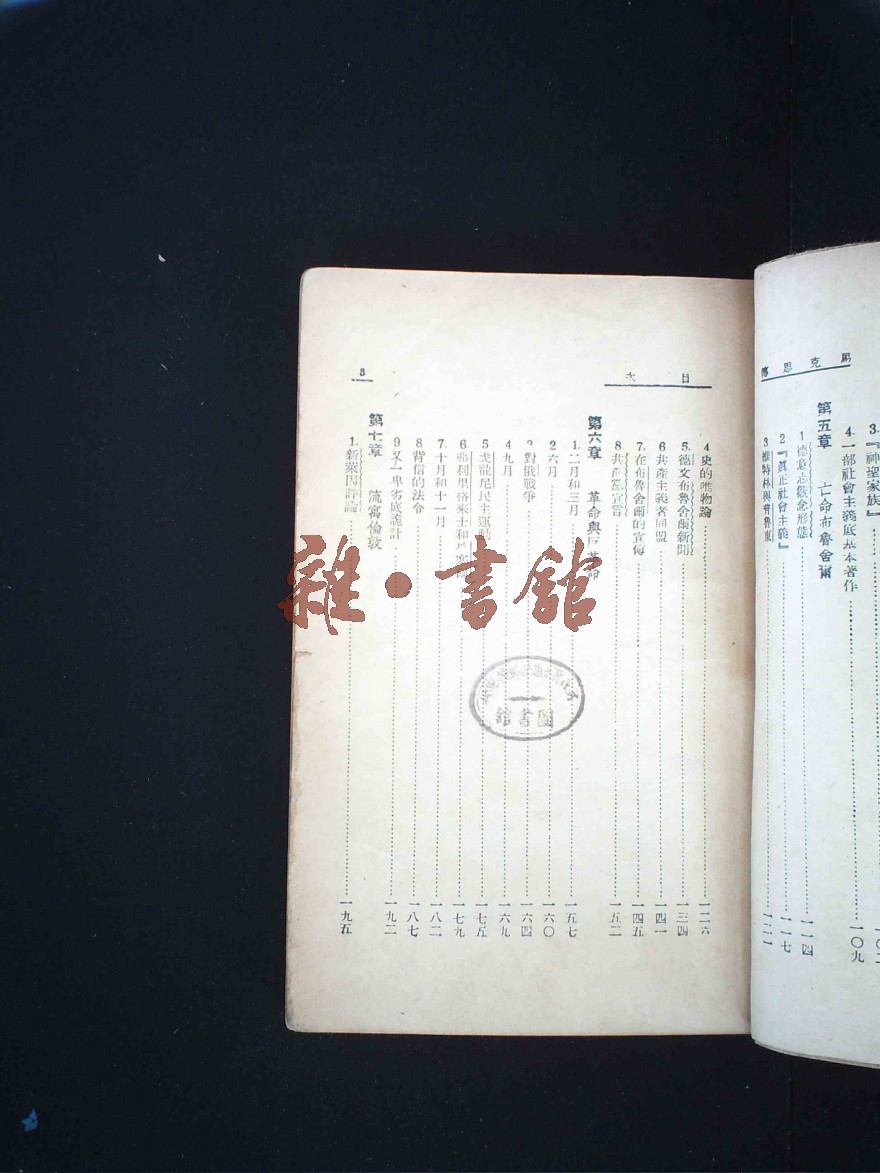 馬克思傳
3.『神聖家族』
4.一部社會主義底基本著作 一〇九
第五章 亡命布魯舍爾
1德意志觀念形態 一一四
2『眞正社會主義』 一一七
3維特林與普魯東 一二一
目次
3
4史的唯物論 一二六
5.德文布魯舍爾新聞 一三四
6共產主義者同盟 一四一
7.在布魯舍爾的宣傳 一四五
8.共產黨宣言 一五二
第六章 革命與反革命
1.二月和三月 一五七
2六月 一六〇
3對俄戰爭 一六四
4九月 一六九
5民主運動 一七五
6.弗利里格來士和 一七九
7.十月和十一月 一八二
8背信的法令 一八七
9又一卑劣底詭計 一九二
第七章 流寓倫敦
1.新萊因評論 一九五
雜·書館
圖書館